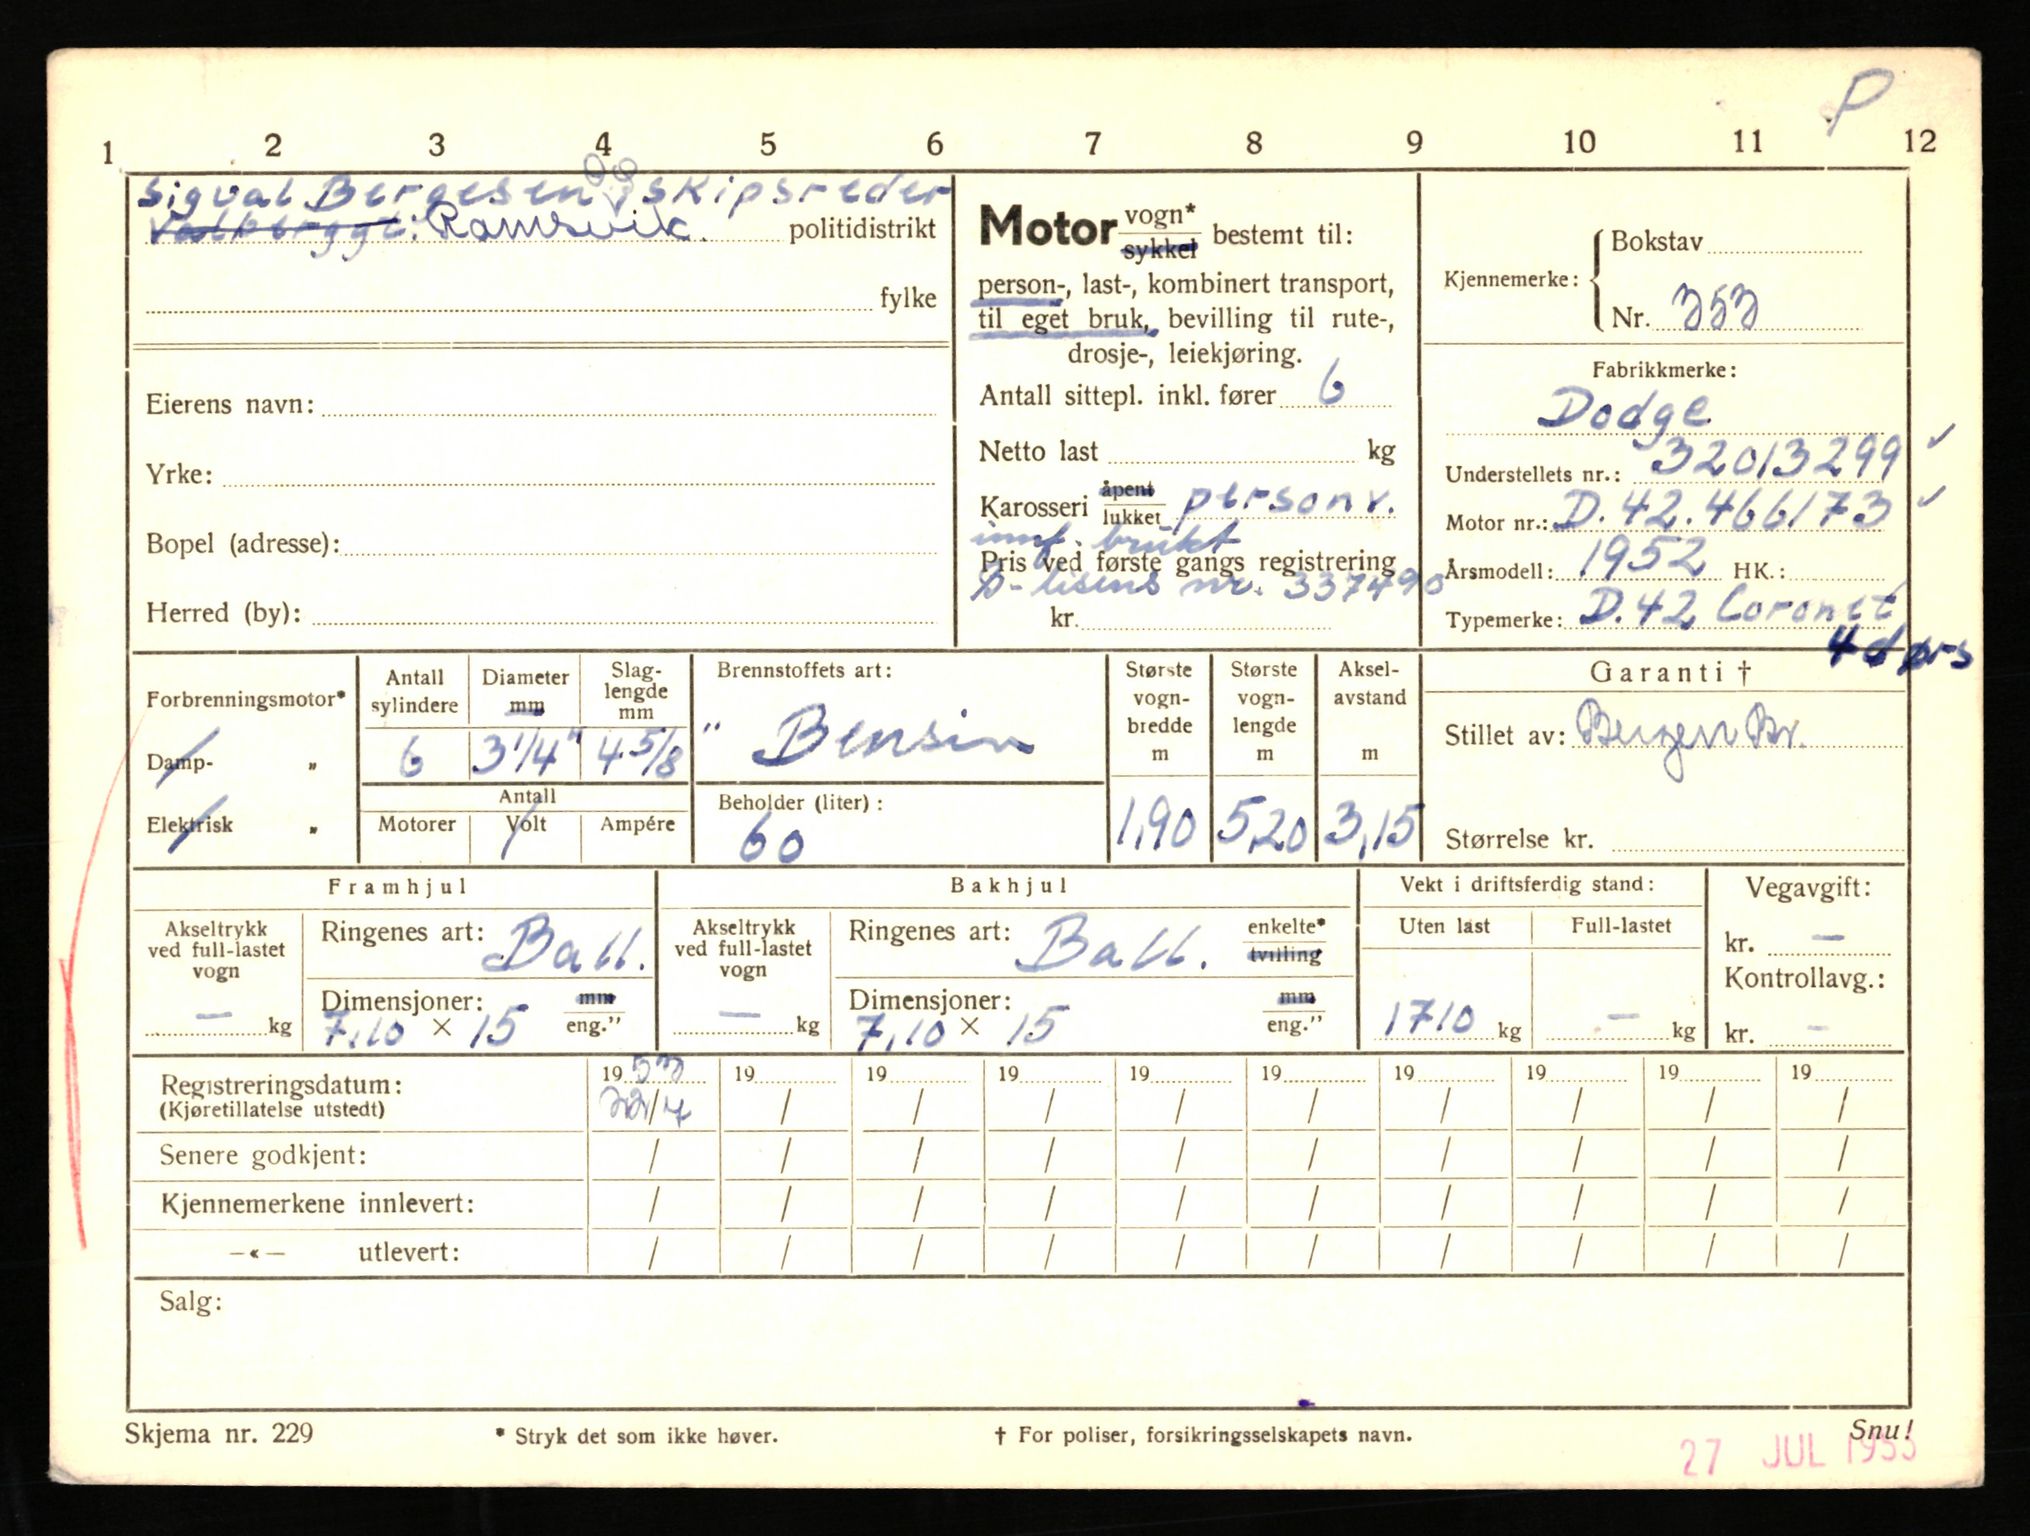 P
1 2 3 4 5 6 7 8 9 10 11 12
Sigval Bergesen skipsreder
Ramsvik. politidistrikt
fylke
Eierens navn:
Yrke:
Bopel (adresse):
Herred (by):
Motor vogn* sykkel bestemt til:
person-, last-, kombinert transport,
til eget bruk, bevilling til rute-,
drosje-, leiekjøring.
Antall sittepl. inkl. fører 6
Netto last kg
Karosseri åpent lukket personv.
innf. brukt
Pris ved første gangs registrering
D-lisens nr. 337490
kr.
Kjennemerke: Bokstav
Nr. 353
Fabrikkmerke:
Dodge
Understellets nr.: 32013299 ✓
Motor nr.: D.42.466173 ✓
Årsmodell: 1952 HK.:
Typemerke: D.42 Coronet
4 dørs
Forbrenningsmotor*
Damp- „
Elektrisk „
Antall sylindere 6
Diameter mm 3 1/4"
Slag-lengde mm 4 5/8"
Antall
Motorer Volt Ampére
Brennstoffets art:
Bensin
Beholder (liter):
60
Største vogn-bredde m 1,90
Største vogn-lengde m 5,20
Aksel-avstand m 3,15
Garanti †
Stillet av: Bergen Br.
Størrelse kr.
Framhjul
Akseltrykk ved full-lastet vogn — kg
Ringenes art: Ball.
Dimensjoner: mm
7,10 × 15 eng."
Bakhjul
Akseltrykk ved full-lastet vogn — kg
Ringenes art: Ball. enkelte* tvilling
Dimensjoner: mm
7,10 × 15 eng."
Vekt i driftsferdig stand:
Uten last Full-lastet
1710 kg — kg
Vegavgift:
kr. —
Kontrollavg.:
kr. —
Registreringsdatum: 1953 19 19 19 19 19 19 19 19 19
(Kjøretillatelse utstedt) 22/4 / / / / / / / / /
Senere godkjent: / / / / / / / / / /
Kjennemerkene innlevert: / / / / / / / / / /
—«— utlevert: / / / / / / / / / /
Salg:
Skjema nr. 229 * Stryk det som ikke høver. † For poliser, forsikringsselskapets navn. Snu!
27 JUL 1953